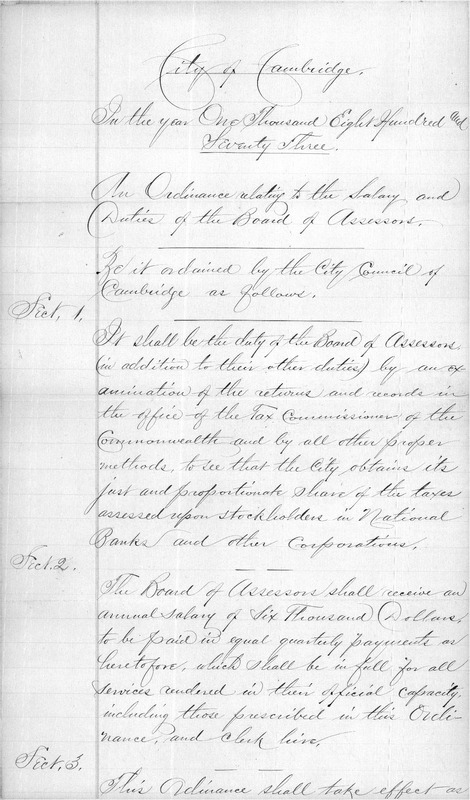 City of Cambridge.
In the year One Thousand Eight Hundred and
Seventy Three.
An Ordinance relating to the Salary and
Duties of the Board of Assessors.
Be it ordained by the City Council of
Cambridge as follows.
Sect. 1.
It shall be the duty of the Board of Assessors
(in addition to their other duties) by an ex
amination of the returns and records in
the office of the Tax Commissioner of the
Commonwealth and by all other proper
methods, to see that the City obtains its
just and proportionate share of the taxes
assessed upon stockholders in National
Banks and other Corporations.
Sect. 2.
The Board of Assessors shall receive an
annual salary of Six Thousand Dollars,
to be paid in equal quarterly payments as
heretofore, which shall be in full for all
services rendered in their official capacity,
including those prescribed in this Ordi-
nance, and clerk hire.
Sect. 3.
This Ordinance shall take effect as